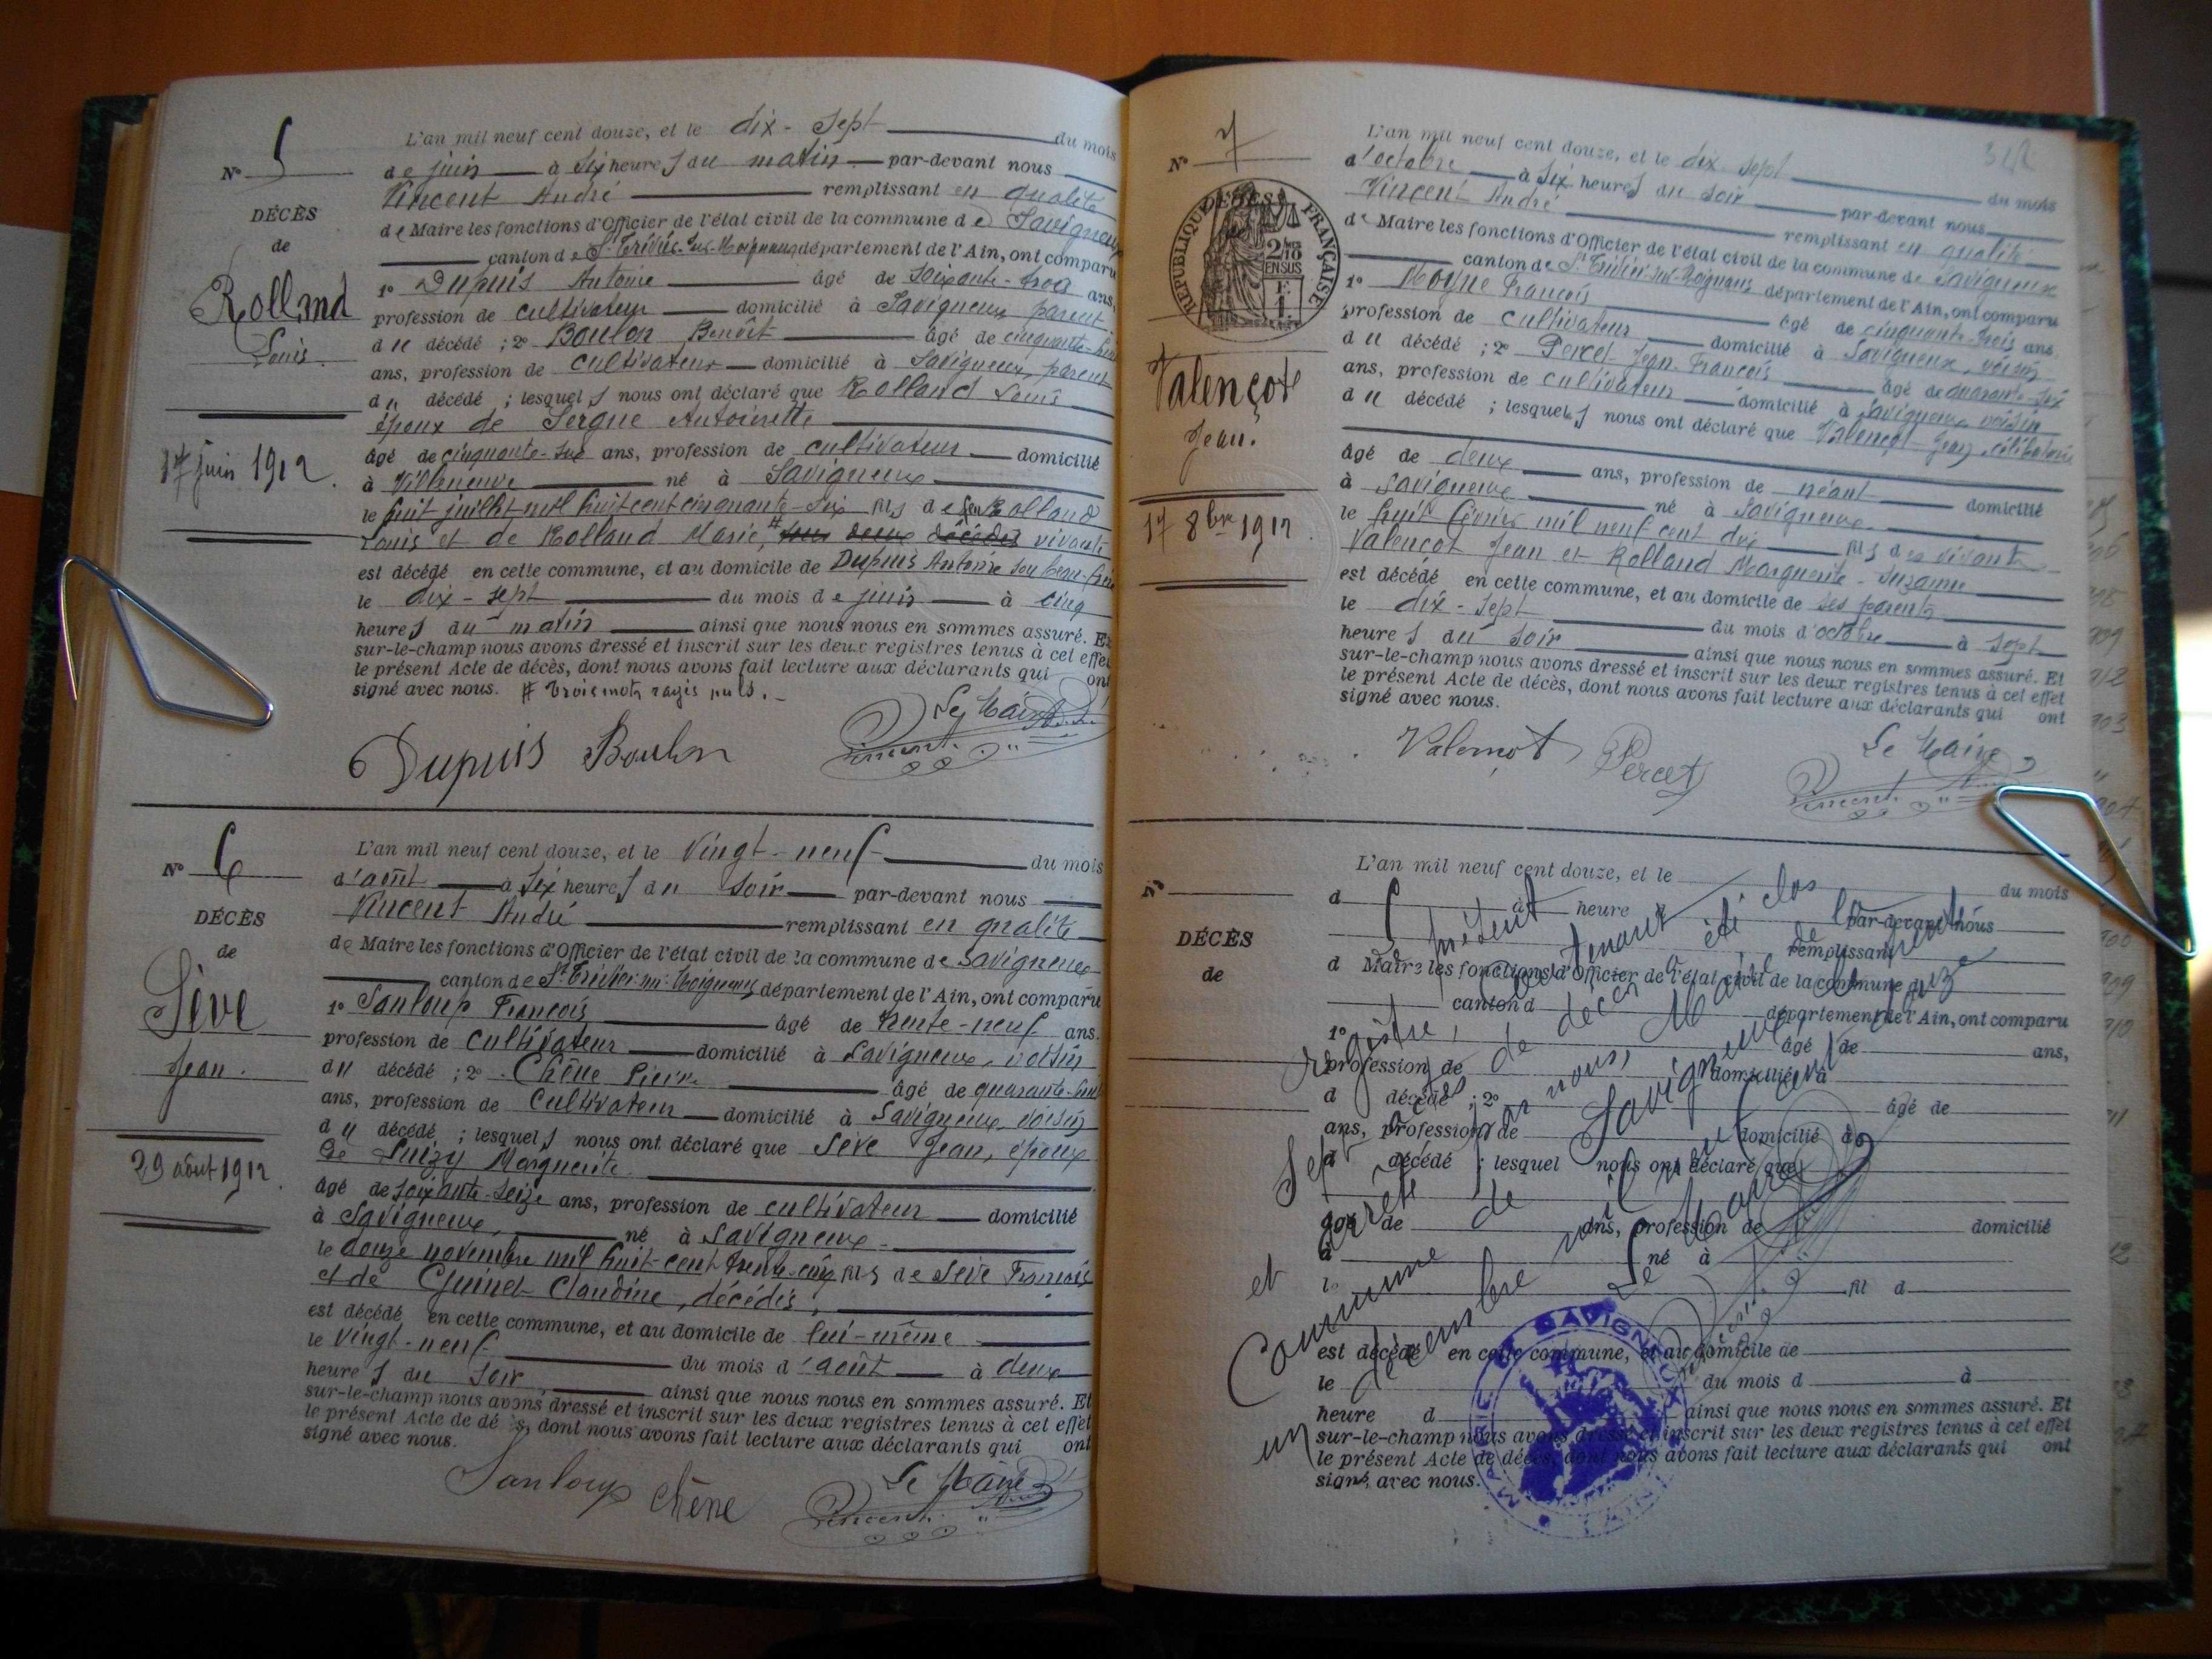 L'an mil neuf cent douze, et le dix-sept du mois
N° 5
de juin à six heures du matin par-devant nous
Vincent André remplissant en qualité
DÉCÈS
de Maire les fonctions d'Officier de l'état civil de la commune de Savigneux
de
canton de St Trivier-sur-Moignans, département de l'Ain, ont comparu
Rolland
1° Dupuis Antoine âgé de soixante-trois ans,
profession de cultivateur domicilié à Savigneux parent
Louis.
du décédé ; 2° Boulon Benoît âgé de cinquante-
ans, profession de cultivateur domicilié à Savigneux, parent
du décédé ; lesquels nous ont déclaré que Rolland Louis
époux de Sergue Antoinette
âgé de cinquante-six ans, profession de cultivateur domicilié
17 juin 1912.
à Villeneuve né à Savigneux
le huit juillet mil huit cent cinquante-six fils de feu Rolland
Louis et de Rolland Marie, # tous deux décédés vivante
est décédé en cette commune, et au domicile de Dupuis Antoine son beau-frère
le dix-sept du mois de juin à cinq
heures du matin ainsi que nous nous en sommes assuré. Et
sur-le-champ nous avons dressé et inscrit sur les deux registres tenus à cet effet
le présent Acte de décès, dont nous avons fait lecture aux déclarants qui ont
signé avec nous. # Trois mots rayés nuls.
Le Maire
Dupuis Boulon Vincent
L'an mil neuf cent douze, et le vingt-neuf du mois
N° 6
d'août à six heures du soir par-devant nous
Vincent André remplissant en qualité
DÉCÈS
de Maire les fonctions d'Officier de l'état civil de la commune de Savigneux
de
canton de St Trivier-sur-Moignans, département de l'Ain, ont comparu
Sève
1° Sanloup François âgé de trente-neuf ans.
profession de cultivateur domicilié à Savigneux, voisin
Jean.
du décédé ; 2° Chêne Pierre âgé de quarante-
ans, profession de cultivateur domicilié à Savigneux, voisin
du décédé ; lesquels nous ont déclaré que Sève Jean, époux
de Marguerite
29 août 1912.
âgé de soixante-seize ans, profession de cultivateur domicilié
à Savigneux, né à Savigneux
le douze novembre mil huit-cent trente-cinq fils de Sève François
et de Guinet Claudine, décédés,
est décédé en cette commune, et au domicile de lui-même
le vingt-neuf du mois d'août à deux
heures du soir ainsi que nous nous en sommes assuré. Et
sur-le-champ nous avons dressé et inscrit sur les deux registres tenus à cet effet
le présent Acte de décès, dont nous avons fait lecture aux déclarants qui ont
signé avec nous.
Sanloup Chêne Le Maire
Vincent
L'an mil neuf cent douze, et le dix-sept du mois
N° 7
d'octobre à six heures du soir par-devant nous
Vincent André remplissant en qualité
DÉCÈS
RÉPUBLIQUE FRANÇAISE
2/10 EN SUS
de Maire les fonctions d'Officier de l'état civil de la commune de Savigneux
canton de St Trivier-sur-Moignans département de l'Ain, ont comparu
1° Moyne François âgé de cinquante-trois ans,
profession de cultivateur domicilié à Savigneux, voisin
du décédé ; 2° Percet Jean François âgé de quarante-six
Valençot
ans, profession de cultivateur domicilié à Savigneux voisin
Jean.
du décédé ; lesquels nous ont déclaré que Valençot Jean célibataire
âgé de deux ans, profession de néant domicilié
à Savigneux né à Savigneux
17 8bre 1912.
le huit février mil neuf cent dix fils des vivants
Valençot Jean et Rolland Marguerite-Suzanne
est décédé en cette commune, et au domicile de ses parents
le dix-sept du mois d'octobre à sept
heures du soir ainsi que nous nous en sommes assuré. Et
sur-le-champ nous avons dressé et inscrit sur les deux registres tenus à cet effet
le présent Acte de décès, dont nous avons fait lecture aux déclarants qui ont
signé avec nous.
Valençot Percet Le Maire
Vincent
L'an mil neuf cent douze, et le du mois
N°
d à heure d par-devant nous
remplissant
DÉCÈS
d Maire les fonctions d'Officier de l'état civil de la commune d
de
canton d département de l'Ain, ont comparu
1° âgé de ans,
profession de domicilié à
d décédé ; 2° âgé de
ans, profession de domicilié à
d décédé ; lesquel nous ont déclaré que
âgé de ans, profession de domicilié
à né à
le fil d
est décédé en cette commune, et au domicile de
le du mois d à
heure d ainsi que nous nous en sommes assuré. Et
sur-le-champ nous avons dressé et inscrit sur les deux registres tenus à cet effet
le présent Acte de décès, dont nous avons fait lecture aux déclarants qui ont
signé avec nous.
présent
registre, contenant
sept actes de décès a été clos
et arrêté par nous, Maire de la
Commune de Savigneux le trente
un décembre mil neuf cent douze
Le Maire
Vincent
MAIRIE DE SAVIGNEUX
(AIN)